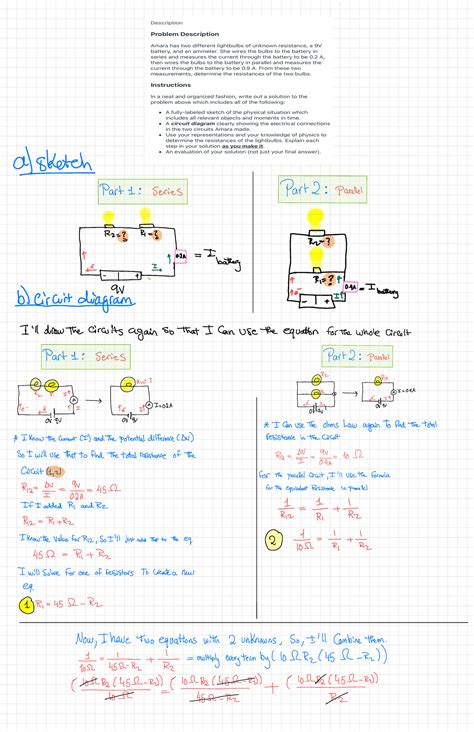 Description
Problem Description
Amara has two different lightbulbs of unknown resistance, a 9V
battery, and an ammeter. She wires the bulbs to the battery in
series and measures the current through the battery to be 0.2 A,
then wires the bulbs to the battery in parallel and measures the
current through the battery to be 0.9 A. From these two
measurements, determine the resistances of the two bulbs.
Instructions
In a neat and organized fashion, write out a solution to the
problem above which includes all of the following:
• A fully-labeled sketch of the physical situation which
includes all relevant objects and moments in time.
• A circuit diagram clearly showing the electrical connections
in the two circuits Amara made.
• Use your representations and your knowledge of physics to
determine the resistances of the lightbulbs. Explain each
step in your solution as you make it.
• An evaluation of your solution (not just your final answer).
a) sketch
Part 1: Series
Part 2: Parallel
R2=? R1=?
0.2A = I battery
I
9V
R2=?
R1=?
0.9A = I battery
b) circuit diagram
I'll draw the circuits again so that I can use the equation for the whole circuit
Part 1: Series
Part 2: Parallel
I=0.2A
* I know the current (I) and the potential difference (ΔV)
So I will use that to find the total resistance of the
Circuit (1,2)
R12 = ΔV/I = 9V/0.2A = 45 Ω
If I added R1 and R2
R12 = R1+R2
I know the value for R12, so I'll just add that to the eq
45 Ω = R1 + R2
I will Solve for one of resistors to create a new
eq.
1 R1 = 45 Ω - R2
* I can use the ohms law again to find the total
resistance in the circuit
R12 = ΔV/I = 9V/0.9A = 10 Ω
for the parallel circuit, I'll use the formula
for the equivalent resistance in parallel
1/R12 = 1/R1 + 1/R2
2 1/10Ω = 1/R1 + 1/R2
Now, I have two equations with 2 unknowns, So, I'll Combine them.
1/10Ω = 1/(45Ω-R2) + 1/R2 = multiply every term by (10 Ω R2 (45 Ω - R2))
(10Ω R2 (45Ω-R2))/10Ω = (10Ω R2 (45Ω-R2))/(45Ω-R2) + (10Ω R2 (45Ω-R2))/R2